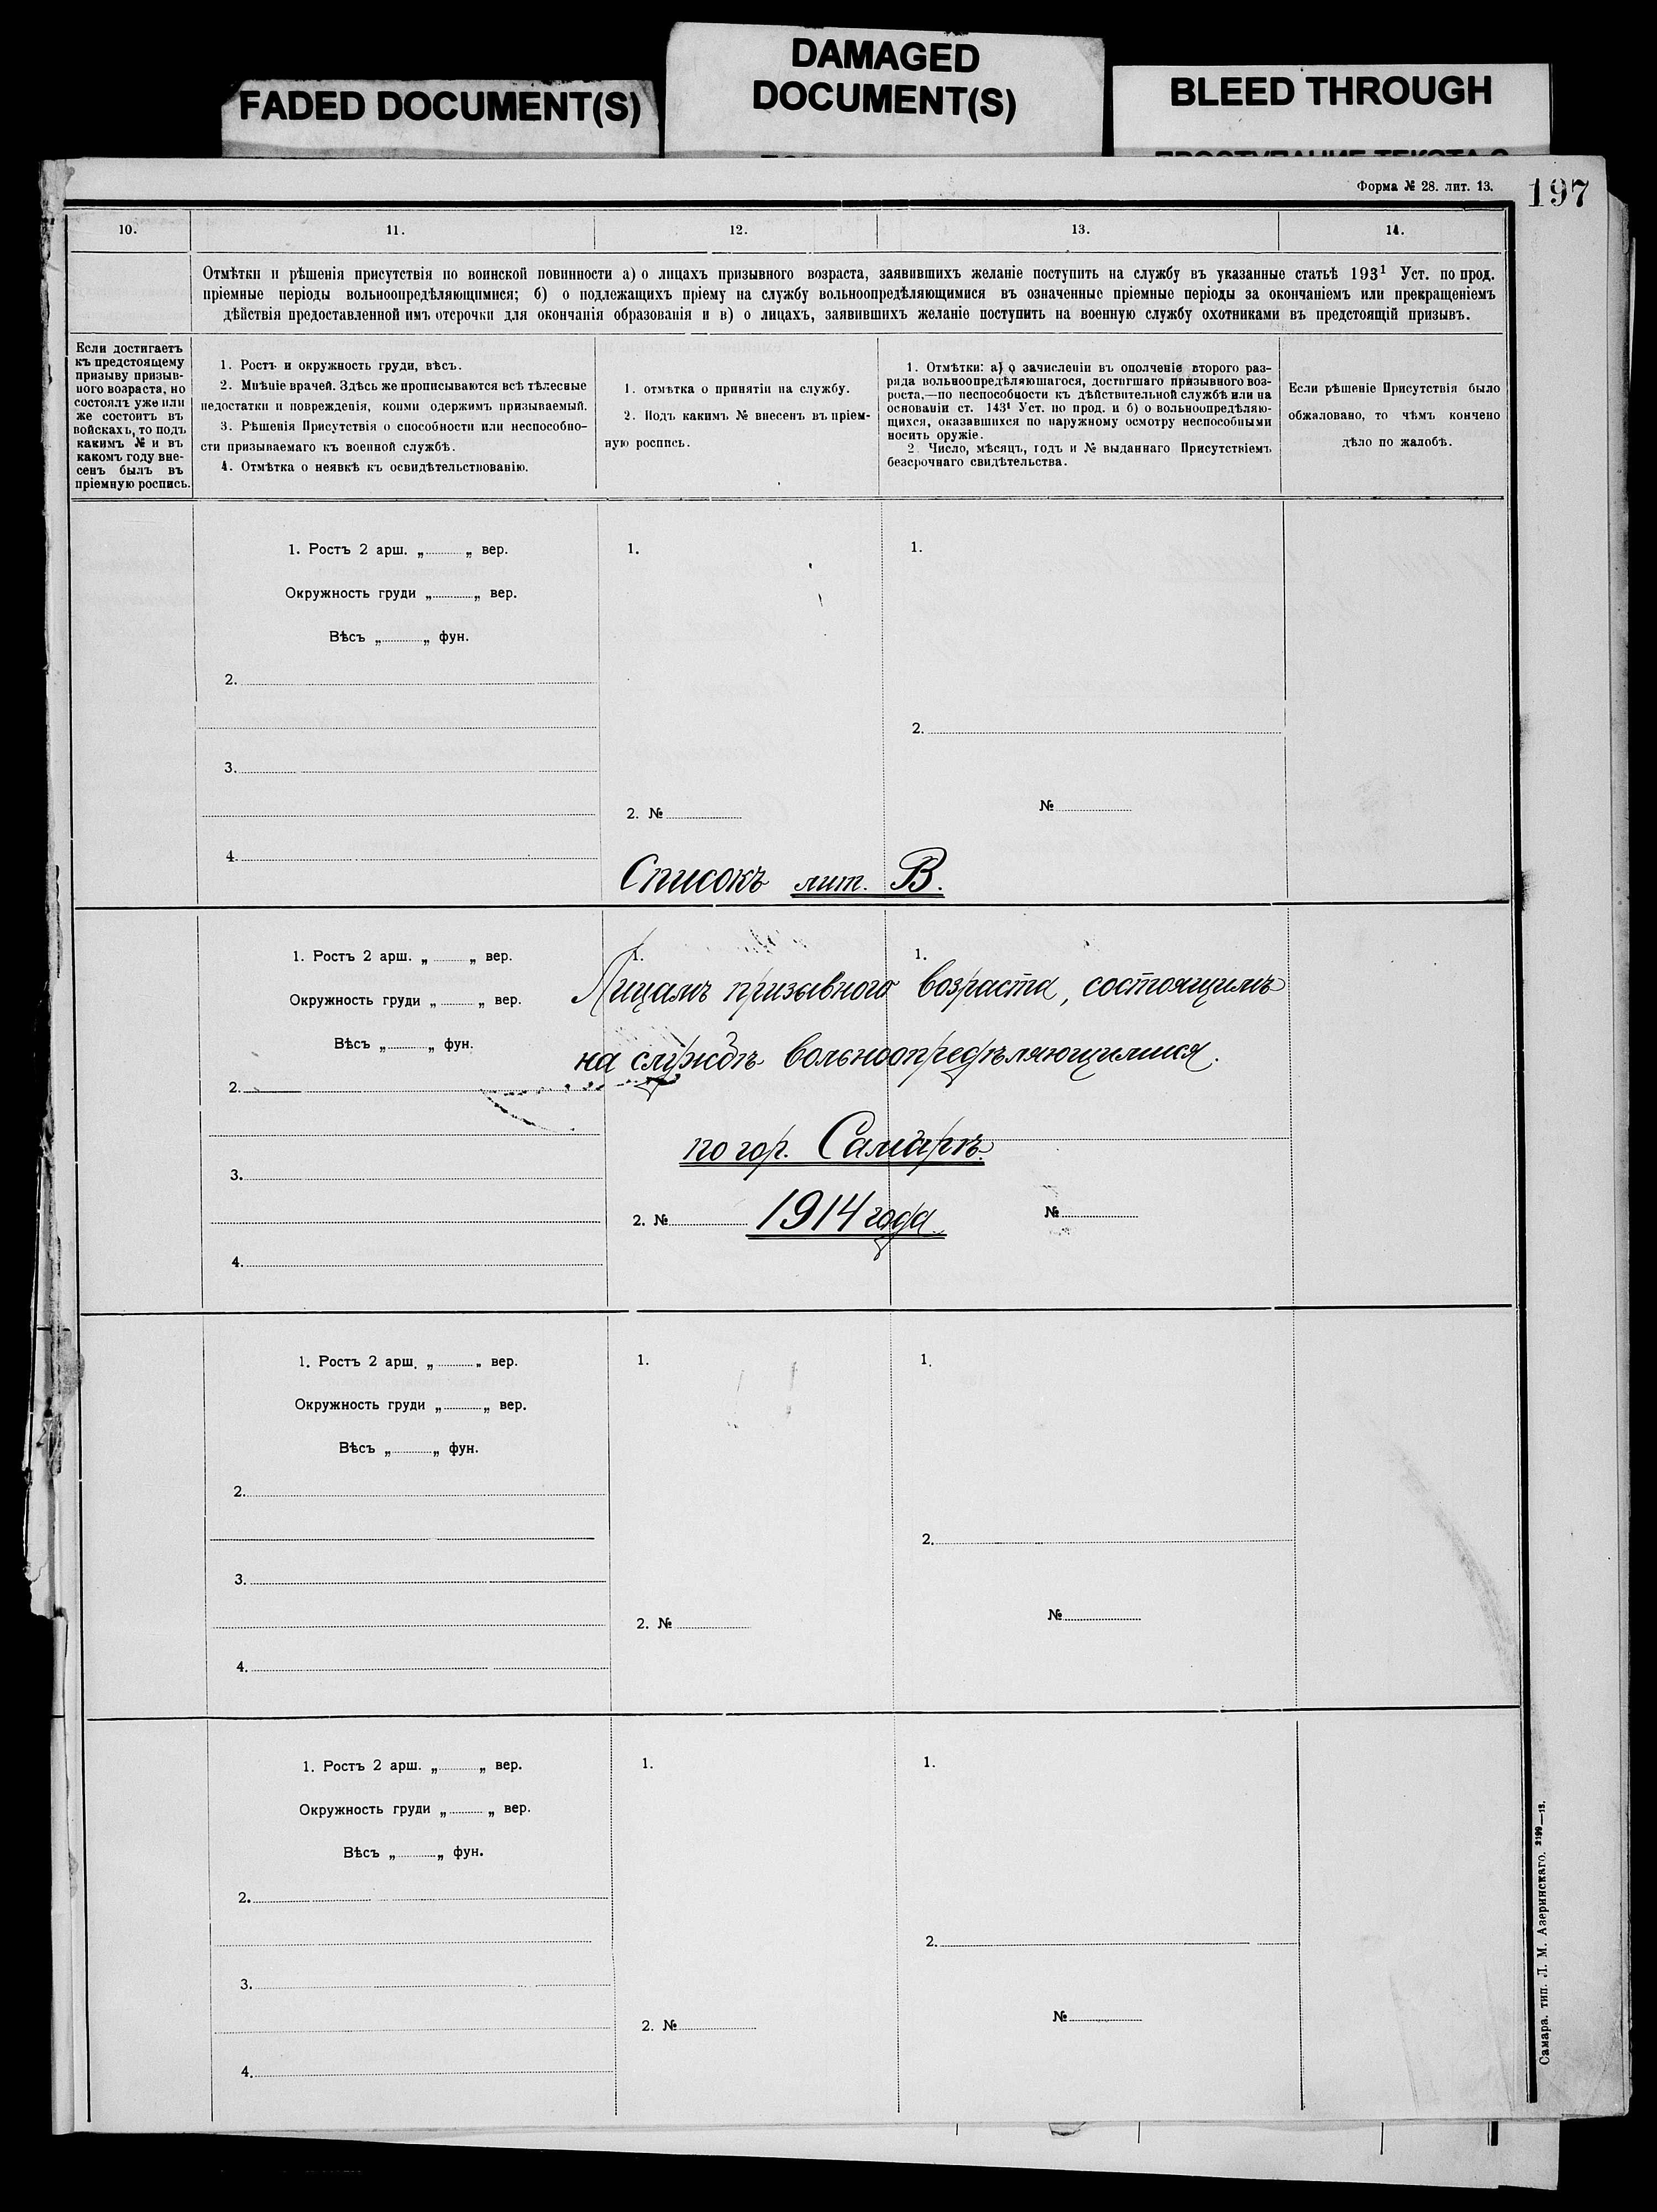 FADED DOCUMENT(S)
DAMAGED
DOCUMENT(S)
BLEED THROUGH
Форма № 28. лит. 13.
197
10.
11.
12.
13.
14.
Отмѣтки и рѣшенія присутствія по воинской повинности а) о лицахъ призывного возраста, заявившихъ желаніе поступить на службу въ указанные статьѣ 193¹ Уст. по прод.
пріемные періоды вольноопредѣляющимися; б) о подлежащихъ пріему на службу вольноопредѣляющимися въ означенные пріемные періоды за окончаніемъ или прекращеніемъ
дѣйствія предоставленной имъ отсрочки для окончанія образованія и в) о лицахъ, заявившихъ желаніе поступить на военную службу охотниками въ предстоящій призывъ.
Если достигаетъ
къ предстоящему
призыву призыв-
ного возраста, но
состоялъ уже или
же состоитъ въ
войскахъ, то подъ
какимъ № и въ
какомъ году вне-
сенъ былъ въ
пріемную роспись.
1. Ростъ и окружность груди, вѣсъ.
2. Мнѣніе врачей. Здѣсь же прописываются всѣ тѣлесные
недостатки и поврежденія, коими одержимъ призываемый.
3. Рѣшенія Присутствія о способности или неспособно-
сти призываемаго къ военной службѣ.
4. Отмѣтка о неявкѣ къ освидѣтельствованію.
1. отмѣтка о принятіи на службу.
2. Подъ какимъ № внесенъ въ пріем-
ную роспись.
1. Отмѣтки: а) о зачисленіи въ ополченіе второго раз-
ряда вольноопредѣляющагося, достигшаго призывного воз-
роста,—по неспособности къ дѣйствительной службѣ или на
основаніи ст. 143¹ Уст. по прод. и б) о вольноопредѣляю-
щихся, оказавшихся по наружному осмотру неспособными
носить оружіе.
2. Число, мѣсяцъ, годъ и № выданнаго Присутствіемъ
безсрочнаго свидѣтельства.
Если рѣшеніе Присутствія было
обжаловано, то чѣмъ кончено
дѣло по жалобѣ.
1. Ростъ 2 арш. „ „ вер.
Окружность груди „ „ вер.
Вѣсъ „ „ фун.
2.
3.
4.
1.
2. №
1.
2.
№
Списокъ лит. В.
1. Ростъ 2 арш. „ „ вер.
Окружность груди „ „ вер.
Вѣсъ „ „ фун.
2.
3.
4.
1.
1.
Лицамъ призывного возраста, состоящимъ
на службѣ вольноопредѣляющимися.
по гор. Самарѣ.
2. №
1914 года
№
1. Ростъ 2 арш. „ „ вер.
Окружность груди „ „ вер.
Вѣсъ „ „ фун.
2.
3.
4.
1.
2. №
1.
2.
№
1. Ростъ 2 арш. „ „ вер.
Окружность груди „ „ вер.
Вѣсъ „ „ фун.
2.
3.
4.
1.
2. №
1.
2.
№
Самара. тип. Л. М. Азеринскаго. 2199—13.